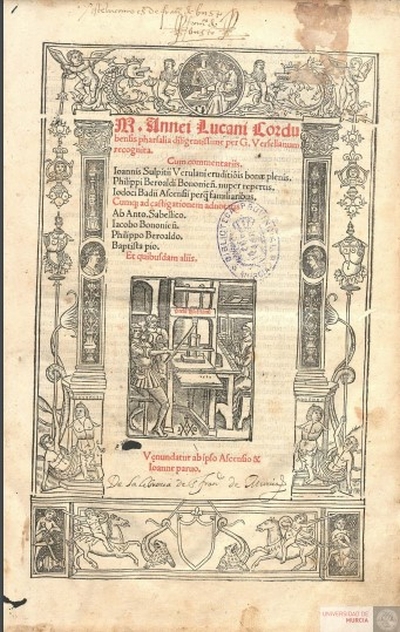 M. Annei Lucani Cordu
bensis pharsalia diligentissime per G. Versellanum
recognita.
Cum commentariis.
Ioannis Sulpitii Verulani eruditiōis bonæ plenis.
Philippi Beroaldi Bononieñ. nuper repertus.
Iodoci Badii Ascensii perq̃ familiaribus.
Cumq; ad castigationem
Ab Anto. Sabellico.
Iacobo Bononieñ.
Philippo Beroaldo.
Baptista pio.
Et quibusdam aliis.
BIBLIOTECA
MURCIA
Vęnundatur ab ipso Ascensio &
Ioanne paruo.
De la libreria de S. franco de Murcia
UNIVERSIDAD DE
MURCIA